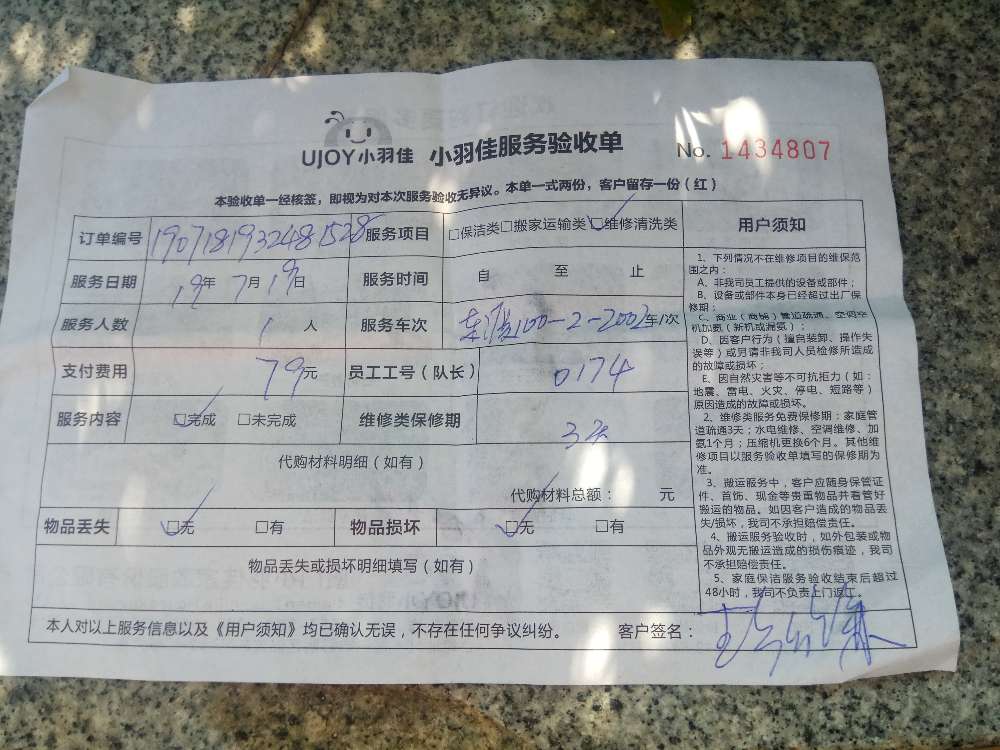 UJOY小羽佳 小羽佳服务验收单 No. 1434807
本验收单一经核签，即视为对本次服务验收无异议。本单一式两份，客户留存一份（红）
订单编号 1907181932481528 服务项目 □保洁类□搬家运输类□维修清洗类
服务日期 19年 7月19日 服务时间 自 至 止
服务人数 1 人 服务车次 100-2-2002车/次
支付费用 79元 员工工号（队长） 0174
服务内容 □完成 □未完成 维修类保修期 3天
代购材料明细（如有）
代购材料总额： 元
物品丢失 □无 □有 物品损坏 □无 □有
物品丢失或损坏明细填写（如有）
本人对以上服务信息以及《用户须知》均已确认无误，不存在任何争议纠纷。 客户签名：
用户须知
1、下列情况不在维修项目的维保范
围之内：
A、非我司员工提供的设备或部件；
B、设备或部件本身已经超过出厂保
修期；
C、商业（商铺）管道疏通、空调空
机加氨（新机或漏氨）；
D、因客户行为（擅自装卸、操作失
误等）或另请非我司人员检修所造成
的故障或损坏；
E、因自然灾害等不可抗拒力（如：
地震、雷电、火灾、停电、短路等）
原因造成的故障或损坏。
2、维修类服务免费保修期：家庭管
道疏通3天；水电维修、空调维修、加
氨1个月；压缩机更换6个月。其他维
修项目以服务验收单填写的保修期为
准。
3、搬运服务中，客户应随身保管证
件、首饰、现金等贵重物品并看管好
搬运的物品。如因客户造成的物品丢
失/损坏，我司不承担赔偿责任。
4、搬运服务验收时，如外包装或物
品外观无搬运造成的损伤痕迹，我司
不承担赔偿责任。
5、家庭保洁服务验收结束后超过
48小时，我司不负责上门返工。